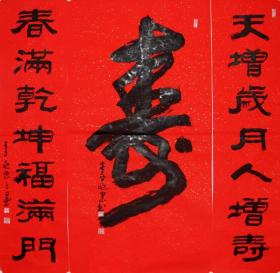 天增歲月人增壽
壽
春滿乾坤福滿門